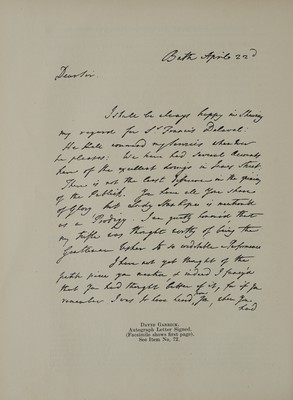 Bath April 22d
Dear Sir
I shall be always happy in shewing
my regard for Sr Francis Delaval:
He shall command my Services whenever
he pleases: We have had several Accounts
here of the excellent doings in James Street
There is not the least difference in the opinion
of the Publick. You have all your share
of Glory but Lady Stanhope is mention'd
as a Prodigy. I am greatly honour'd that
my trifle was thought worthy of being the
Gentleman Usher to so a
I have not yet thought of the
petite piece you mention & indeed I fancy'd
that you had thought better of it, for if you
remember I was to have heard from you, when you
had
DAVID GARRICK.
Autograph Letter Signed.
(Facsimile shows first page).
See Item No. 72.